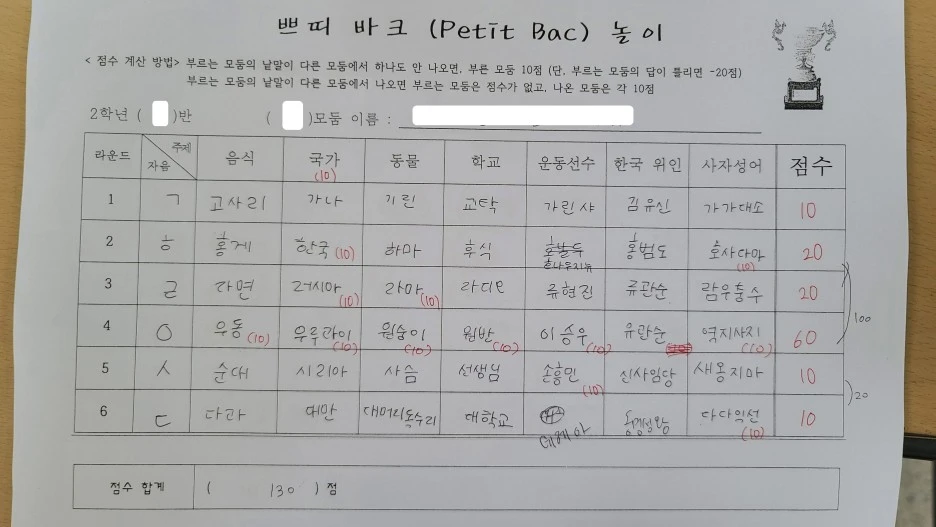 쁘띠 바크 (Petit Bac) 놀이
< 점수 계산 방법> 부르는 모둠의 낱말이 다른 모둠에서 하나도 안 나오면, 부른 모둠 10점 (단, 부르는 모둠의 답이 틀리면 -20점)
부르는 모둠의 낱말이 다른 모둠에서 나오면 부르는 모둠은 점수가 없고, 나온 모둠은 각 10점
2학년 ( )반 ( )모둠 이름 :
라운드 주제 자음 음식 국가 동물 학교 운동선수 한국 위인 사자성어 점수
(10)
1 ㄱ 고사리 가나 기린 교탁 가린샤 김유신 가가대소 10
2 ㅎ 홍게 한국 (10) 하마 후식 호나우지뉴 홍범도 호사다마 (10) 20
3 ㄹ 라면 러시아 (10) 라마 (10) 라디오 류현진 류관순 람우충수 20
100
4 ㅇ 우동 (10) 우루과이 (10) 원숭이 (10) 원반 (10) 이승우 (10) 유관순 역지사지 (10) 60
5 ㅅ 순대 시리아 사슴 선생님 손흥민 (10) 신사임당 새옹지마 10
20
6 ㄷ 다과 대만 대머리독수리 대학교 데헤아 동명성왕 다다익선 (10) 10
점수 합계 ( 130 ) 점